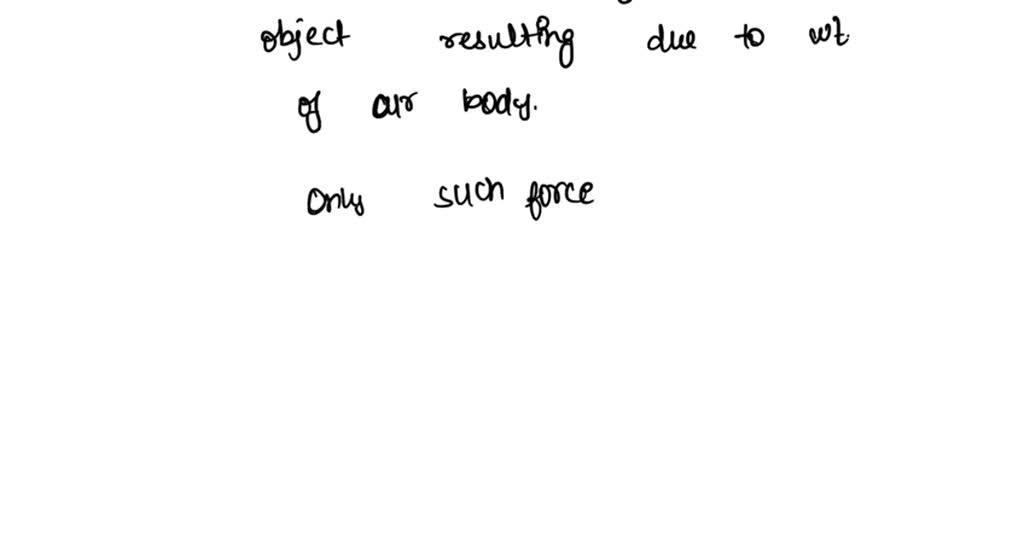 object resulting due to wt.
of our body.
Only such force